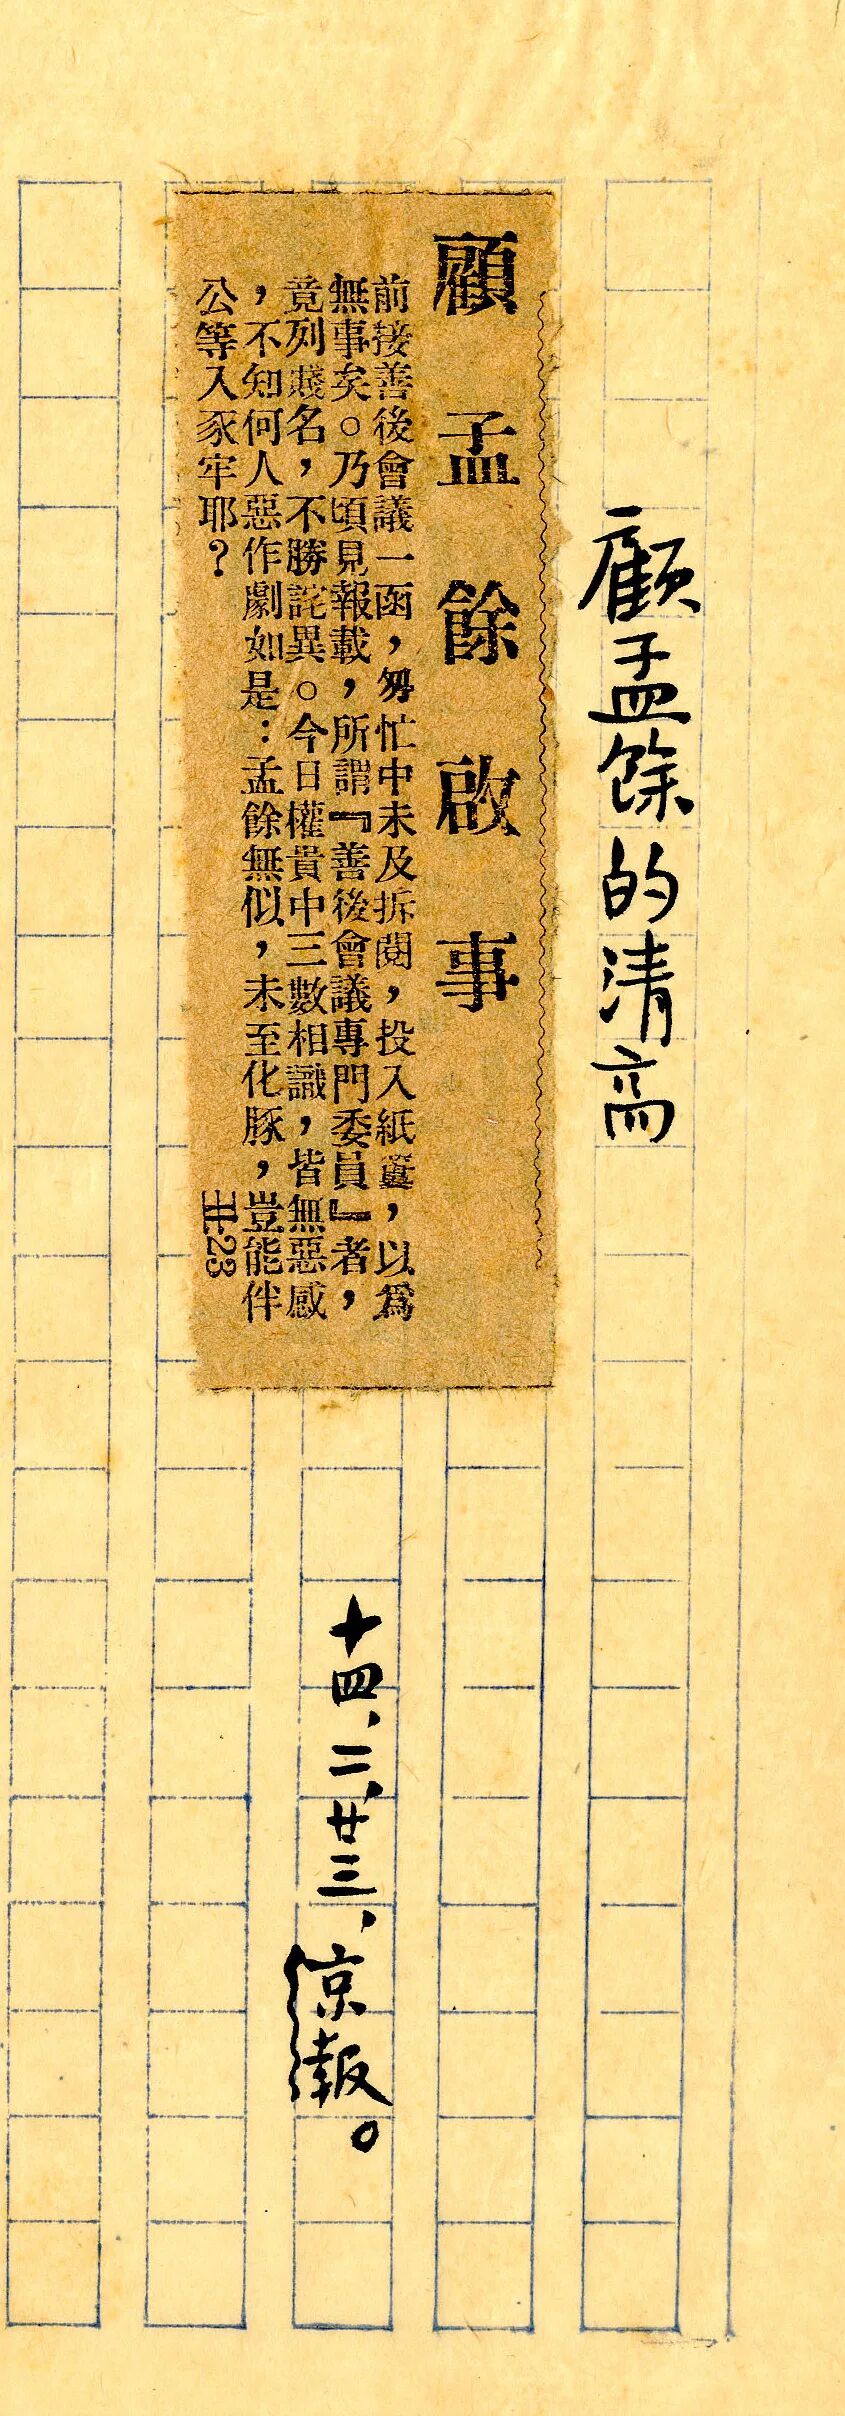 顧孟餘的清高
顧孟餘啟事
前接善後會議一函，匆忙中未及拆閱，投入紙簍，以為
無事矣。乃頃見報載，所謂『善後會議專門委員』者，
竟列賤名，不勝詫異。今日權貴中三數相識，皆無惡感
，不知何人惡作劇如是：孟餘無似，未至化豚，豈能伴
公等入豕牢耶？
23
十四、二、廿三、京報。